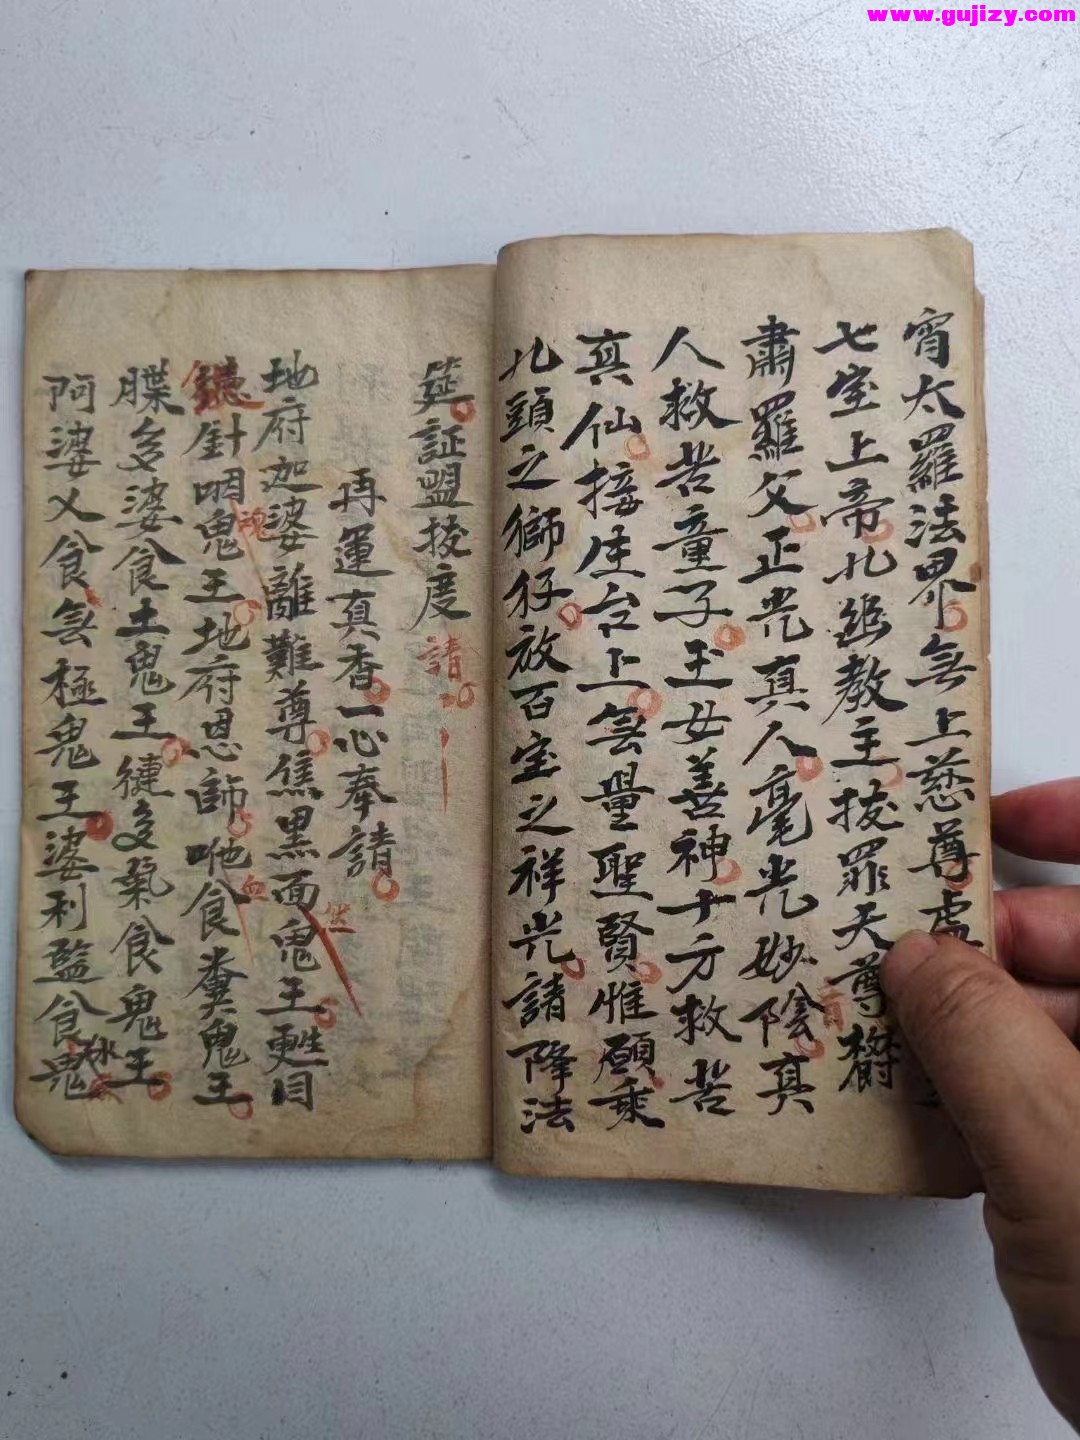 www.gujizy.com
宵太羅法界無上慈尊虚
七宝上帝九幽教主拔罪天尊欝
肅羅父正光真人毫光妙陰真
人救苦童子玉女善神十方救苦
真仙接生台上無量聖賢惟願乗
九頭之獅仔放百宝之祥光請降法
筵証盟拔度請
再運真香一心奉請
地府迦婆離難尊焦黒面鬼王甦目
針咽鬼王地府恩師咃食糞鬼王
牒多婆食土鬼王健多氣食鬼王
阿婆乂食無極鬼王婆利監食鬼
魂
血
然
育